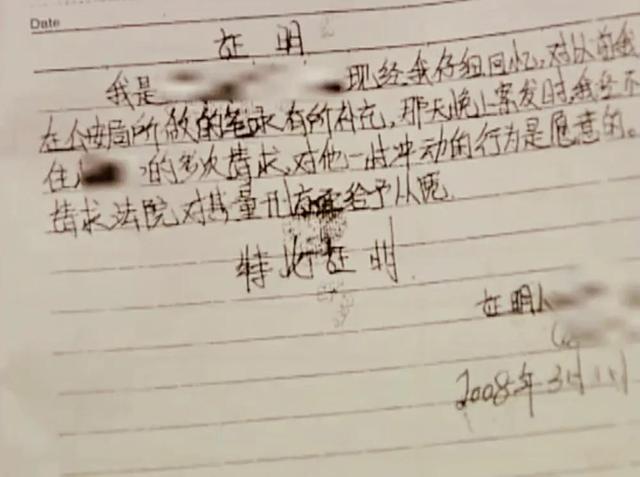 Date
证明
我是 现经我仔细回忆,对以前我
在公安局所做的笔录有所补充,那天晚上案发时,我经不
住 的多次请求,对他一时冲动的行为是愿意的。
请求法院对其量刑 给予从
特此证明
证明人
2008年3月